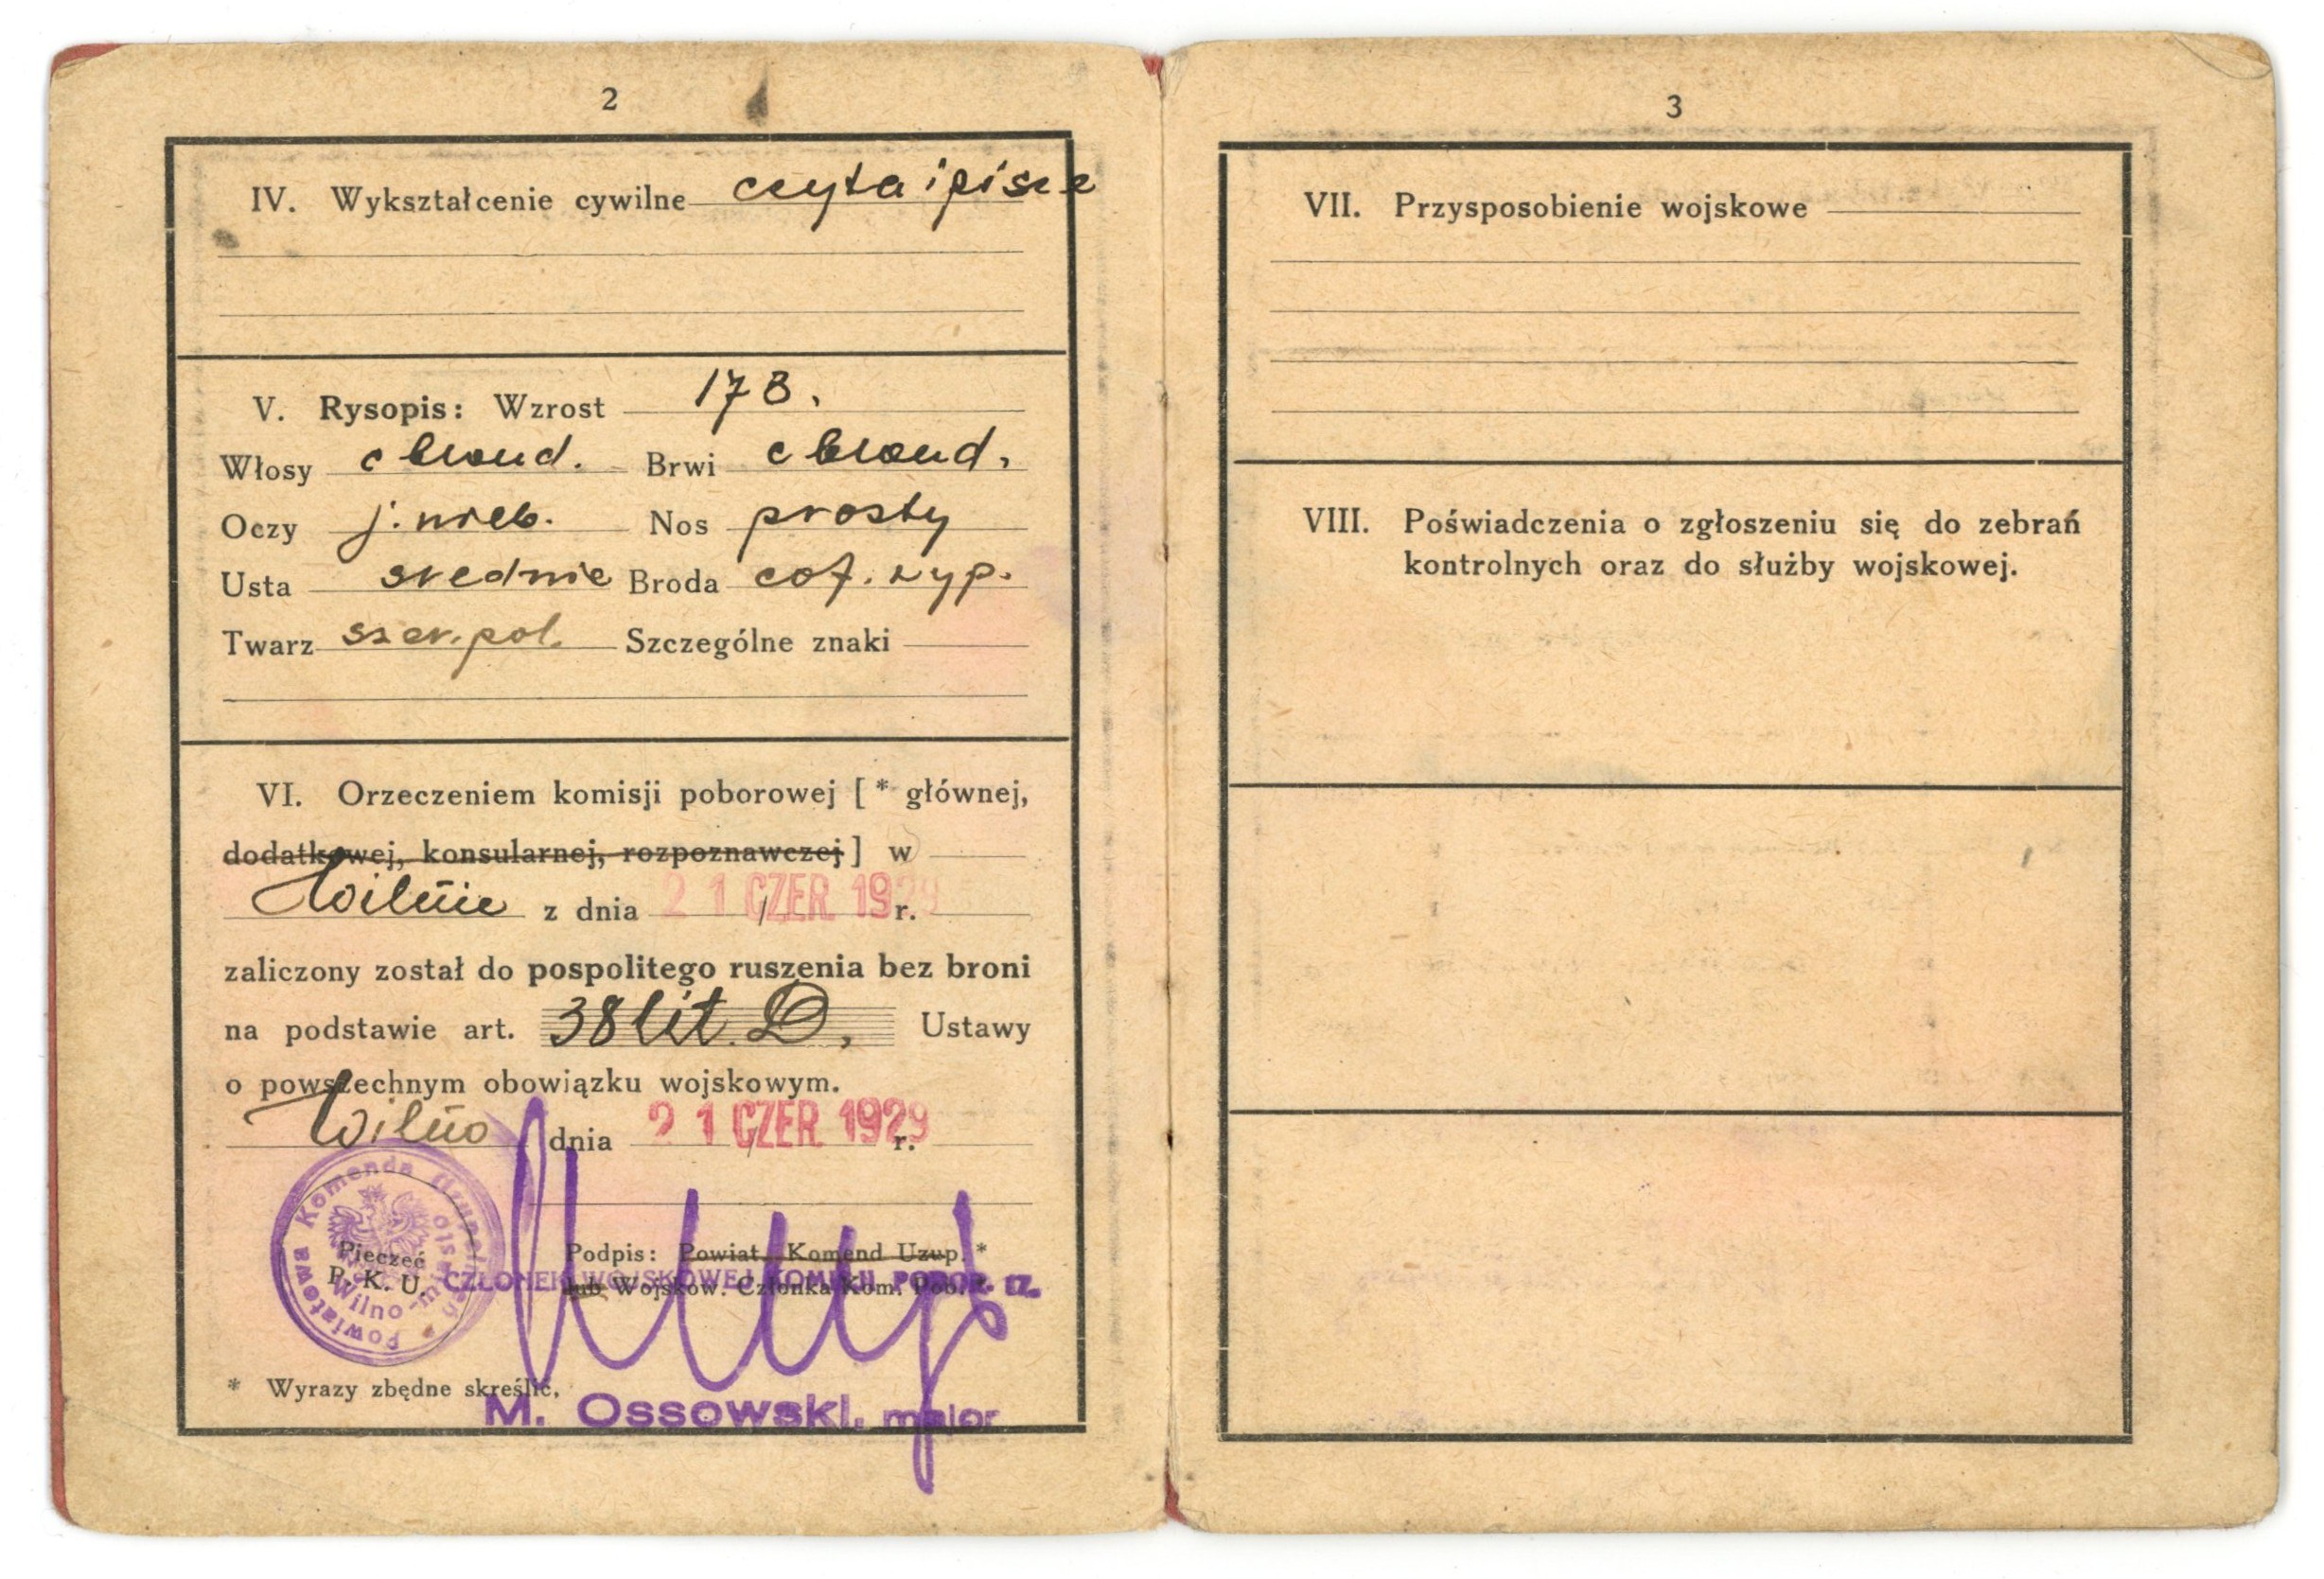 2
IV. Wykształcenie cywilne czyta i pisze
V. Rysopis: Wzrost 178.
Włosy c blond. Brwi c blond.
Oczy j. nieb. Nos prosty
Usta srednie Broda cof. wyp.
Twarz szer. pol. Szczególne znaki
VI. Orzeczeniem komisji poborowej [ * głównej,
dodatkowej, konsularnej, rozpoznawczej ] w
Wilnie z dnia 21 CZER 1929 r.
zaliczony został do pospolitego ruszenia bez broni
na podstawie art. 38 lit. D, Ustawy
o powszechnym obowiązku wojskowym.
Wilno dnia 21 CZER 1929 r.
Powiatowa Komenda Uzupełnień
Wilno-miasto
Pieczęć
P. K. U.
Podpis: Powiat. Komend Uzup. *
CZŁONEK WOJSKOWEJ KOMISJI POBOR.
lub Wojskow. Członka Kom. Pob.
* Wyrazy zbędne skreślić.
M. Ossowski, major
3
VII. Przysposobienie wojskowe
VIII. Poświadczenia o zgłoszeniu się do zebrań
kontrolnych oraz do służby wojskowej.